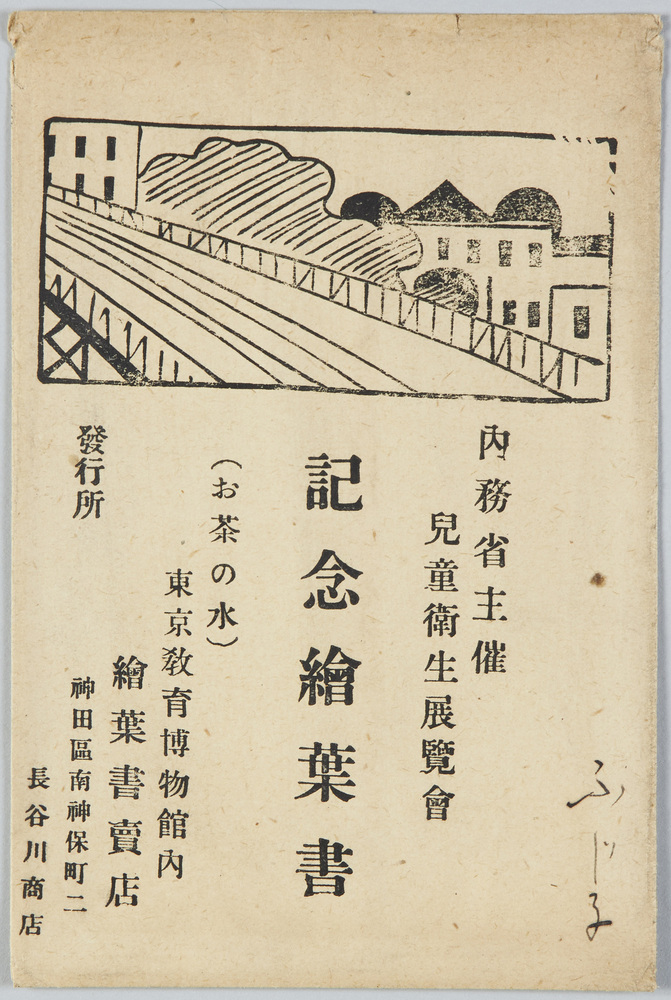 内務省主催
兒童衛生展覽會
記念繪葉書
（お茶の水）
東京敎育博物館內
繪葉書賣店
發行所
神田區南神保町二
長谷川商店
ふじ子